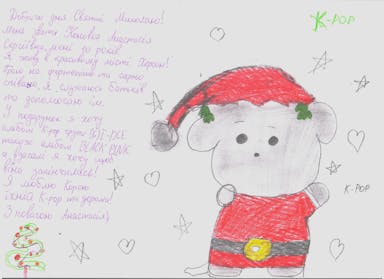 Доброго дня Святий Миколаю!
Мене звати Анастасія
Сергіївна, мені 10 років.
Я живу в красивому місті
Граю на фортепіано та гарно
співаю. Я слухаюсь батьків
та допомагаю їм.
У подарунок я хочу
альбом K-pop групи
також альбом BLACK PINK
а взагалі я хочу щоб
війна закінчилась!
Я люблю Корею
їхній K-pop та дорами!
З повагою Анастасія)
K-POP
K-POP